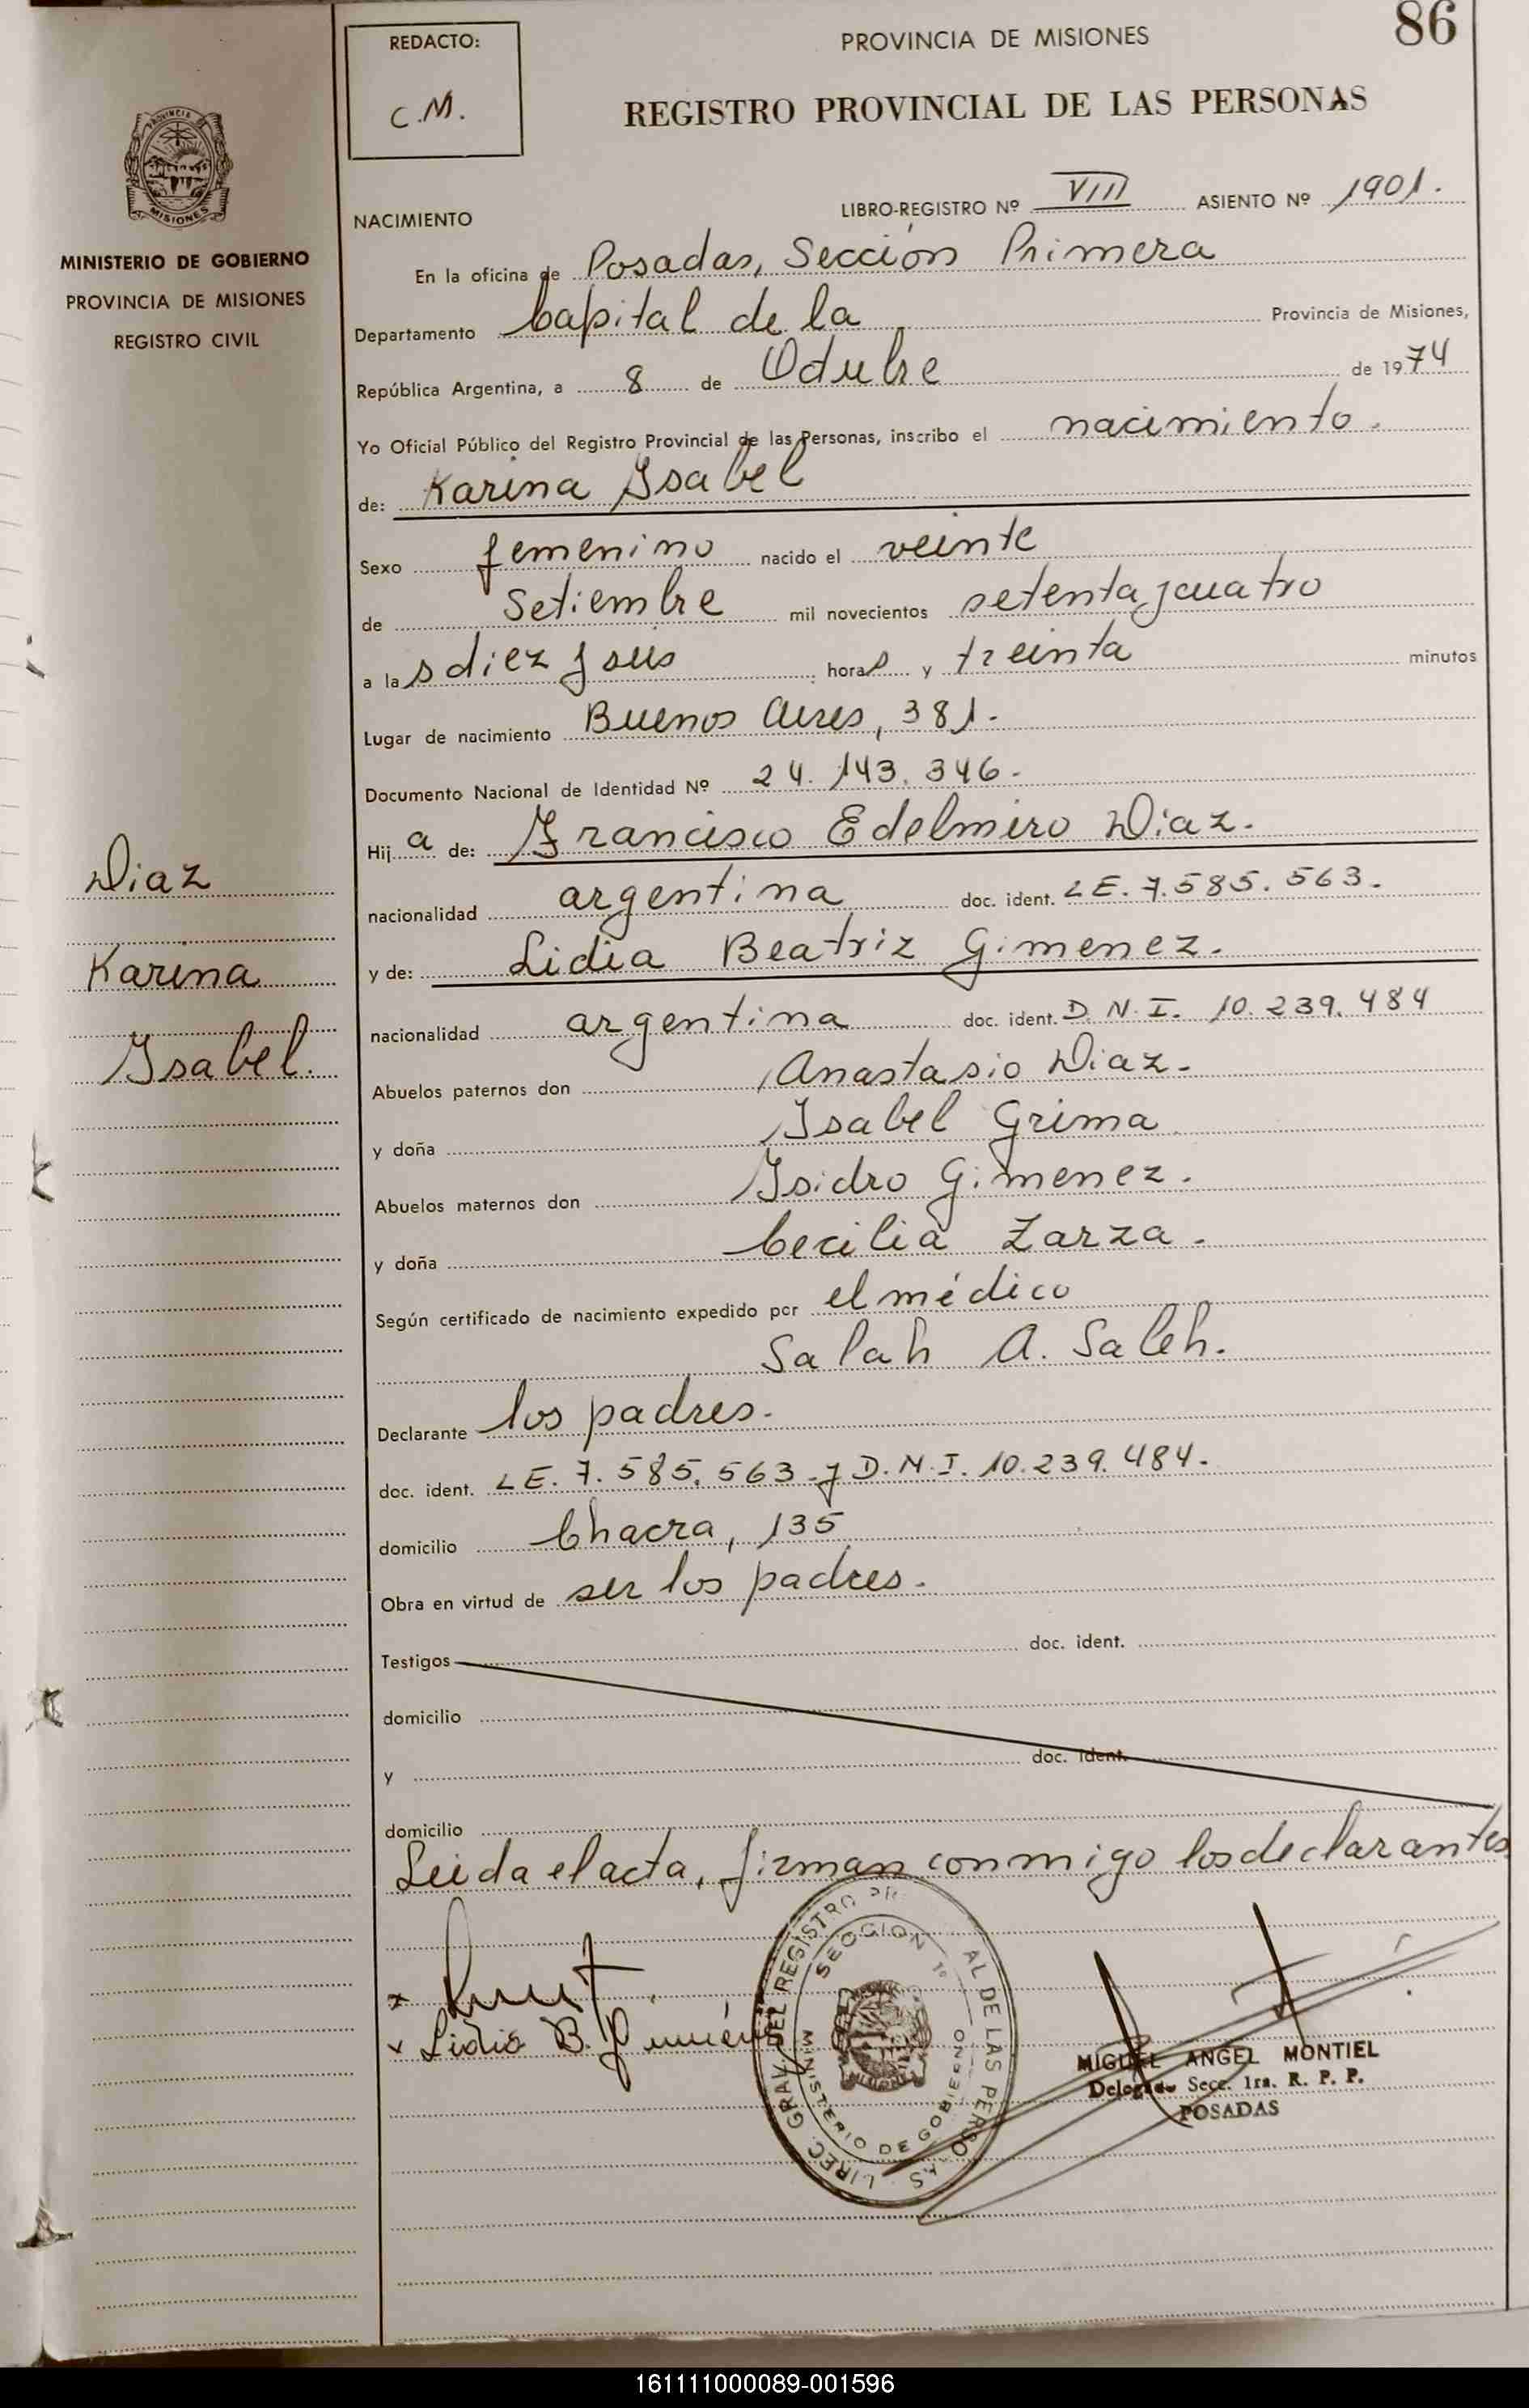 86
REDACTO:
C.M.
PROVINCIA DE MISIONES
REGISTRO PROVINCIAL DE LAS PERSONAS
PROVINCIA DE
MISIONES
MINISTERIO DE GOBIERNO
PROVINCIA DE MISIONES
REGISTRO CIVIL
NACIMIENTO
LIBRO-REGISTRO Nº VIII ASIENTO Nº 1901.
En la oficina de Posadas, Sección Primera
Departamento Capital de la Provincia de Misiones,
República Argentina, a 8 de Octubre de 1974
Yo Oficial Público del Registro Provincial de las Personas, inscribo el nacimiento.
de: Karina Isabel
Sexo femenino nacido el veinte
de Setiembre mil novecientos setenta y cuatro
a las diez y seis horas y treinta minutos
Lugar de nacimiento Buenos Aires, 381.
Documento Nacional de Identidad Nº 24.143.346.
Hija de: Francisco Edelmiro Diaz.
nacionalidad argentina doc. ident. LE. 7.585.563.
y de: Lidia Beatriz Gimenez.
nacionalidad argentina doc. ident. D.N.I. 10.239.484
Abuelos paternos don Anastasio Diaz.
y doña Isabel Grima
Abuelos maternos don Isidro Gimenez.
y doña Cecilia Zarza.
Según certificado de nacimiento expedido por el médico
Salah A. Saleh.
Declarante los padres.
doc. ident. LE. 7.585.563 y D.N.I. 10.239.484.
domicilio Chacra, 135
Obra en virtud de ser los padres.
Testigos doc. ident.
domicilio
y doc. ident.
domicilio
Leida el acta, firman conmigo los declarantes
Diaz
Karina
Isabel.
x
x Lidia B. Jimménez
DIREC. GRAL. DEL REGISTRO PR AL DE LAS PERSONAS
SECCION 1ª
MINISTERIO DE GOBIERNO
MISIONES
MIGUEL ANGEL MONTIEL
Delegado Secc. 1ra. R. P. P.
POSADAS
161111000089-001596